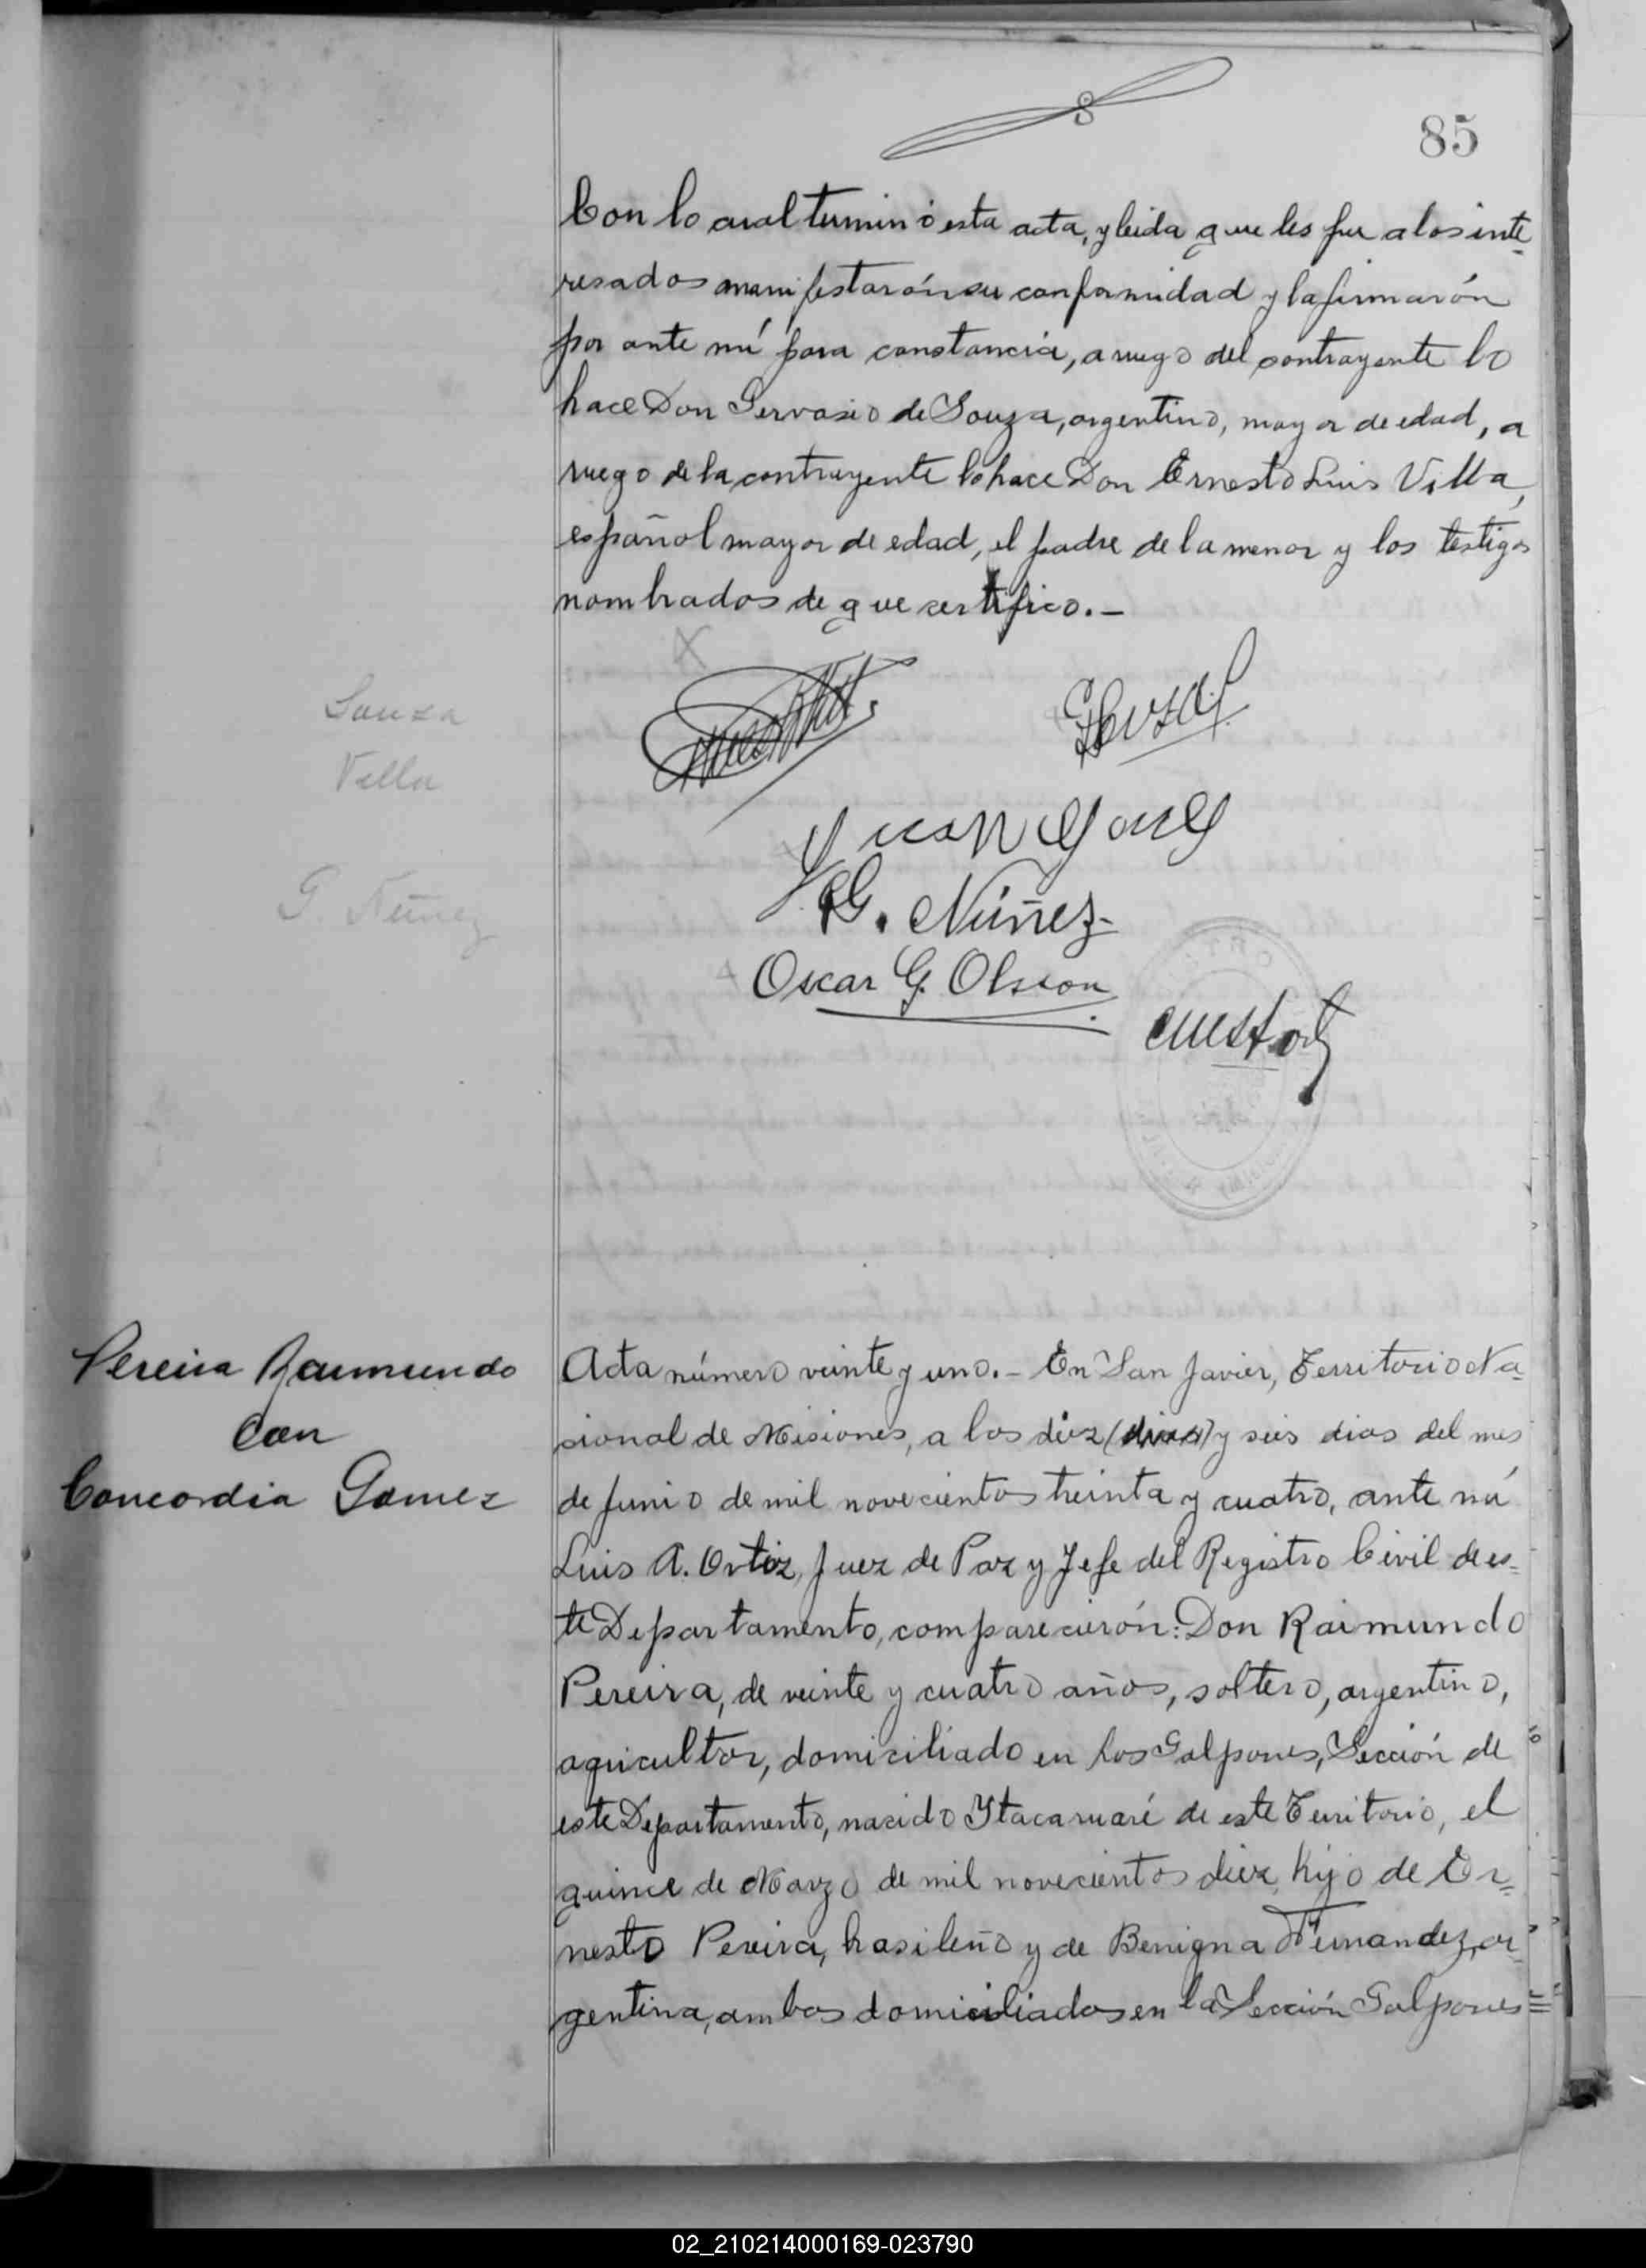 8
85
Con lo cual terminó esta acta, y leida que les fue a los inte
resados manifestarón su conformidad y la firmarón
por ante mí para constancia, a ruego del contrayente lo
hace Don Gervasio de Souza, argentino, mayor de edad, a
ruego de la contrayente lo hace Don Ernesto Luis Villa,
español mayor de edad, el padre de la menor y los testigos
nombrados de que certifico.-
Souza
Villa
G. Núñez
G. Núñez
Oscar G. Olsson
Pereira Raimundo
con
Concordia Gomez
Acta número veinte y uno.- En San Javier, Territorio Na-
cional de Misiones, a los diez (dies) y seis dias del mes
de Junio de mil novecientos treinta y cuatro, ante mí
Luis A. Ortiz, Juez de Paz y Jefe del Registro Civil de es=
te Departamento, comparecierón: Don Raimundo
Pereira, de veinte y cuatro años, soltero, argentino,
agricultor, domiciliado en Los Galpones, Sección de
este Departamento, nacido Ytacaruaré de este Territorio, el
quince de Marzo de mil novecientos diez, hijo de Er=
nesto Pereira, brasileño y de Benigna Fernandez, ar-
gentina, ambos domiciliados en la Sección Galpones=
02_210214000169-023790